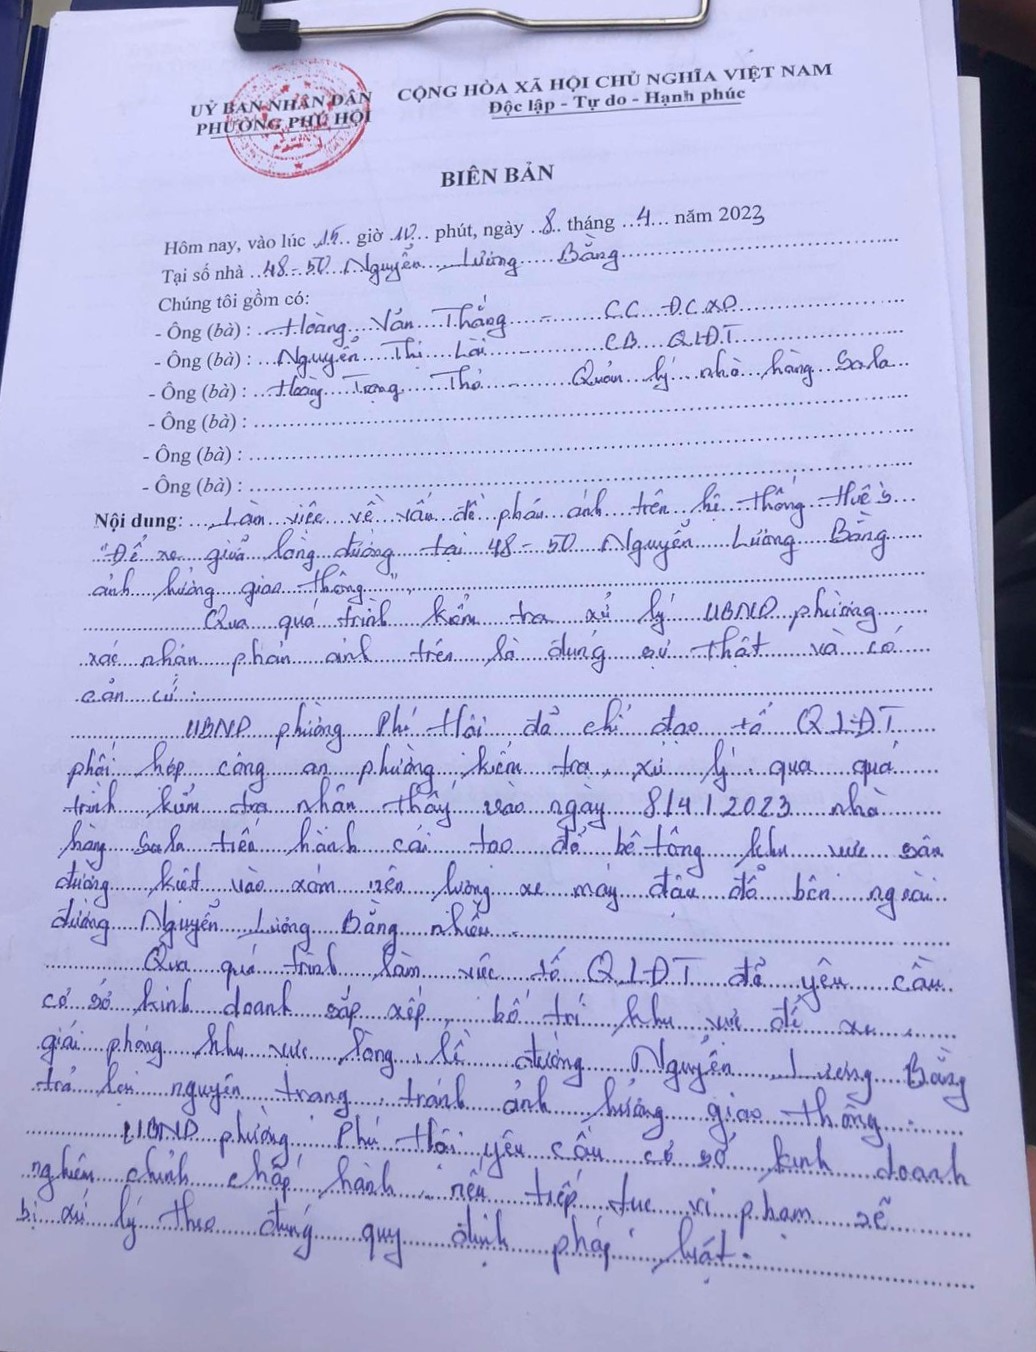 UỶ BAN NHÂN DÂN
PHƯỜNG PHÚ HỘI
CỘNG HÒA XÃ HỘI CHỦ NGHĨA VIỆT NAM
Độc lập - Tự do - Hạnh phúc
BIÊN BẢN
Hôm nay, vào lúc 15 giờ 10 phút, ngày 8 tháng 4 năm 2023
Tại số nhà 48-50 Nguyễn Lương Bằng
Chúng tôi gồm có:
- Ông (bà) : Hoàng Văn Thắng - CC ĐC.XD
- Ông (bà) : Nguyễn Thị Lài - CB QLĐT
- Ông (bà) : Hoàng Trọng Thỏ - Quản lý nhà hàng Sala
- Ông (bà) :
- Ông (bà) :
- Ông (bà) :
Nội dung: Làm việc về vấn đề phản ánh trên hệ thống Huế S
"Để xe giữa lòng đường tại 48-50 Nguyễn Lương Bằng
ảnh hưởng giao thông",
Qua quá trình kiểm tra xử lý UBND phường
xác nhận phản ánh trên là đúng sự thật và có
căn cứ :
UBND phường Phú Hội đã chỉ đạo tổ QLĐT
phối hợp công an phường kiểm tra, xử lý. qua quá
trình kiểm tra nhận thấy vào ngày 8/4/2023 nhà
hàng Sala tiến hành cải tạo đổ bê tông khu vực sân
đường kiệt vào xóm nên lượng xe máy đậu đỗ bên ngoài
đường Nguyễn Lương Bằng nhiều.
Qua quá trình làm việc tổ QLĐT đã yêu cầu
cơ sở kinh doanh sắp xếp, bố trí khu vực để xe
giải phóng khu vực lòng, lề đường Nguyễn Lương Bằng
trả lại nguyên trạng, tránh ảnh hưởng giao thông.
UBND phường Phú Hội yêu cầu cơ sở kinh doanh
nghiêm chỉnh chấp hành, nếu tiếp tục vi phạm sẽ
bị xử lý theo đúng quy định pháp luật.